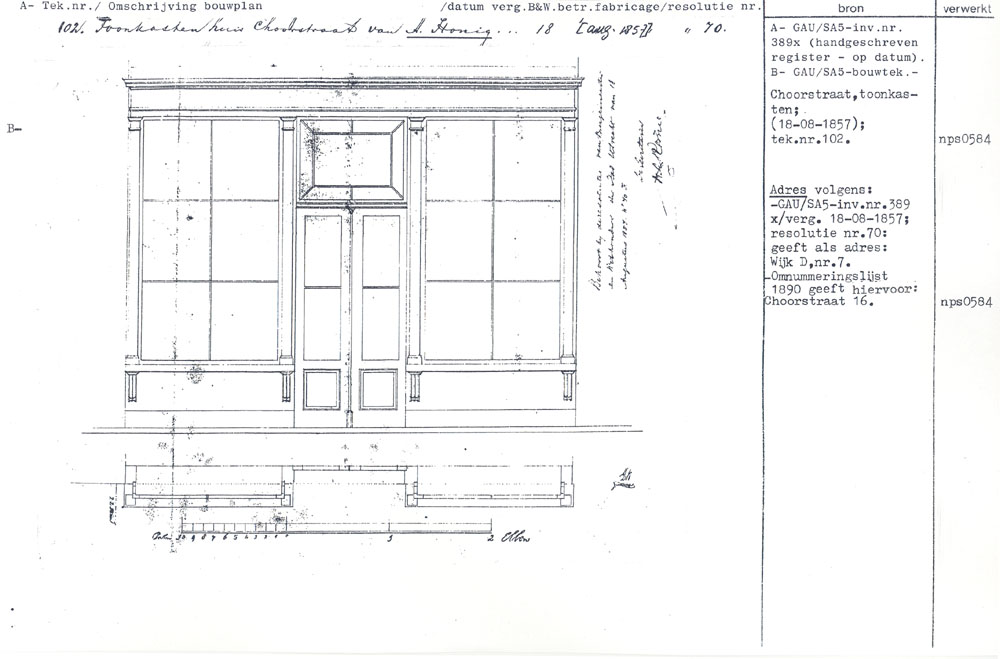 A- Tek.nr./ Omschrijving bouwplan /datum verg.B&W.betr.fabricage/resolutie nr.
102. Toonkasten huis Choorstraat van A. Honig... 18 [aug. 1857] " 70.
B-
Behoort bij de resolutie van Burgemeester
en Wethouders der Stad Utrecht van 18
Augustus 1857 Nº 70.
De Secretaris
Palm 10 9 8 7 6 5 4 3 2 1 0 1 2 Ellen
bron
verwerkt
A- GAU/SA5-inv.nr.
389x (handgeschreven
register - op datum).
B- GAU/SA5-bouwtek.-
Choorstraat,toonkas-
ten;
(18-08-1857);
tek.nr.102.
nps0584
Adres volgens:
-GAU/SA5-inv.nr.389
x/verg. 18-08-1857;
resolutie nr.70:
geeft als adres:
Wijk D,nr.7.
-Omnummeringslijst
1890 geeft hiervoor:
Choorstraat 16.
nps0584